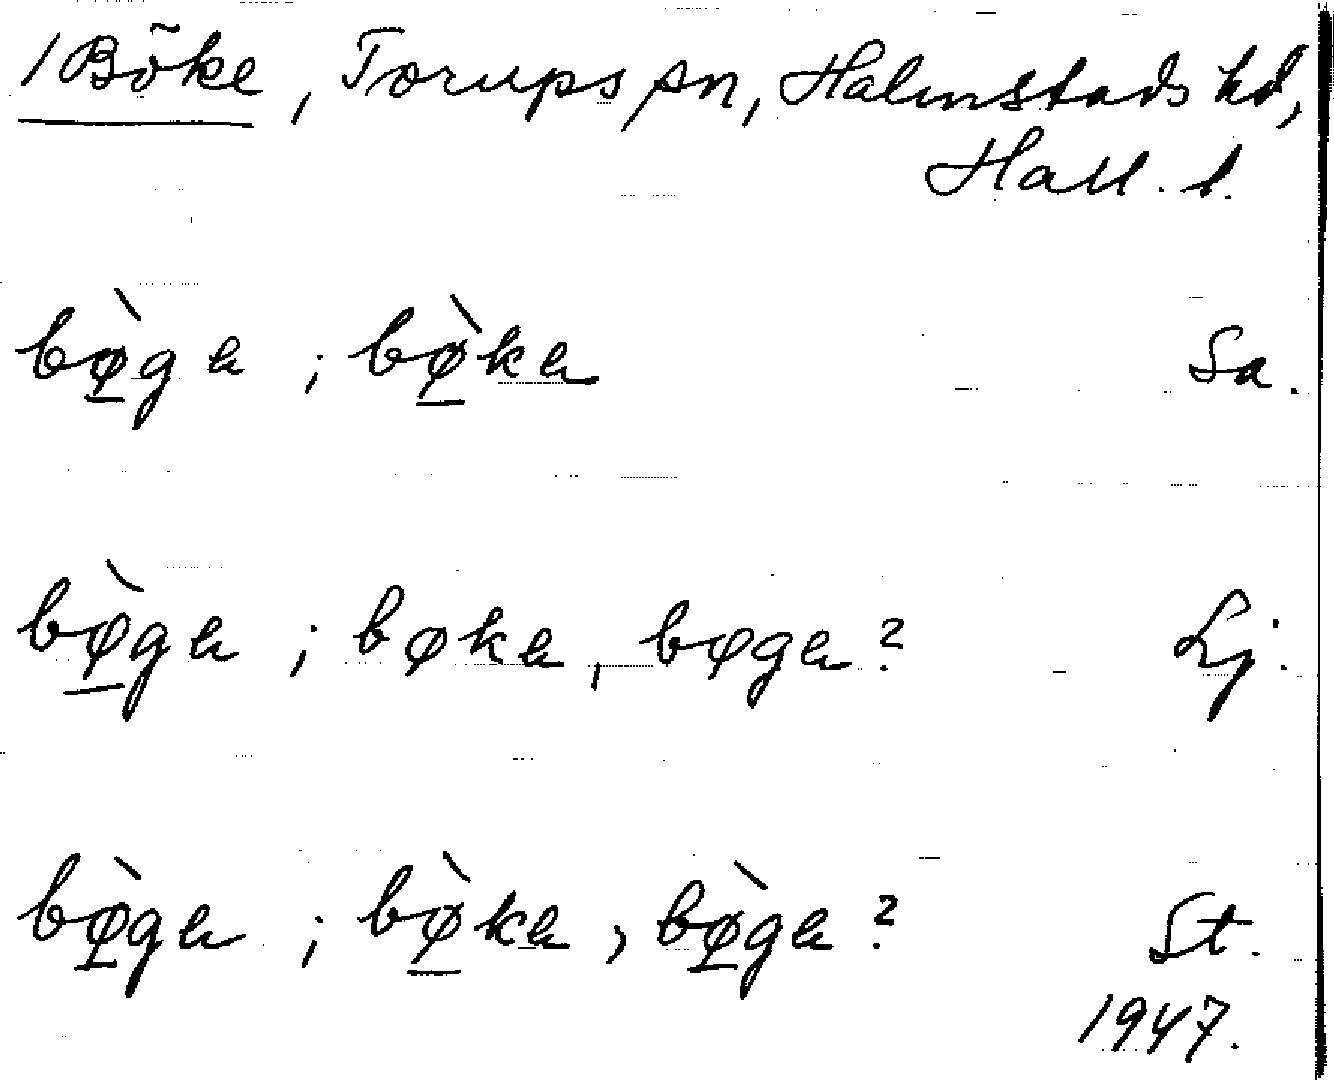 1 Böke, Torups sn, Halmstads hd,
Hall. l.
bø̲̀ga ; bø̲̀ka Sa.
bø̲̀ga ; bøka, bøga? Lj.
bø̲̀ga ; bø̲̀ka, bø̲̀ga? St.
1947.